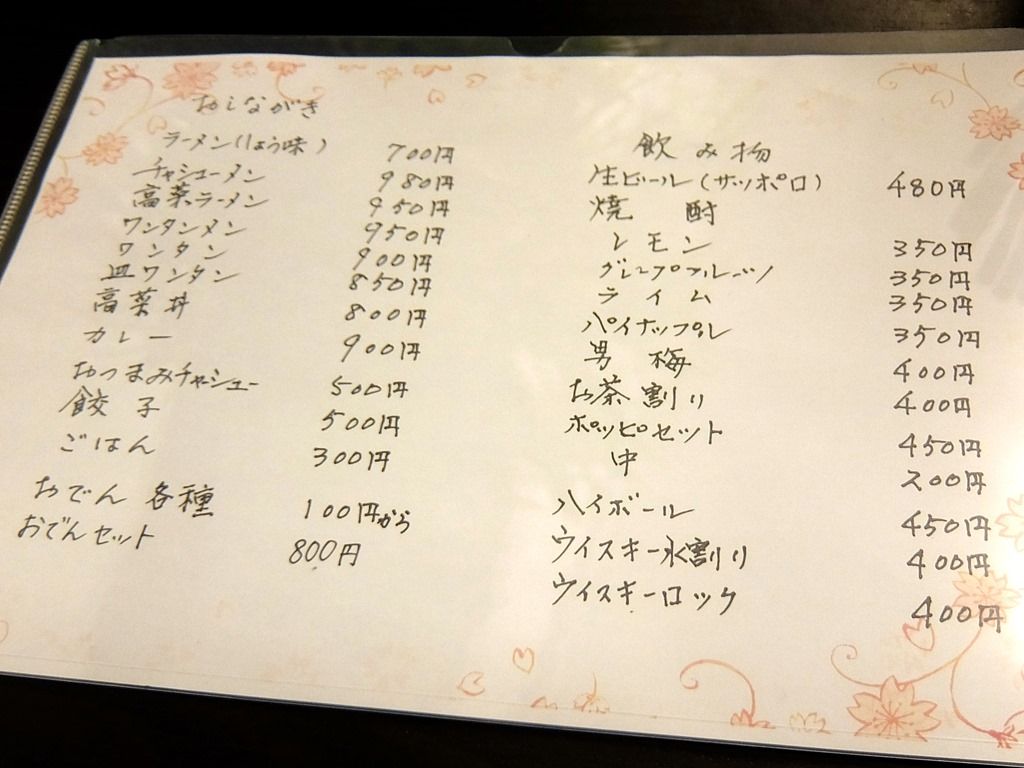 おしながき
ラーメン(しょう味) 700円
チャシューメン 980円
高菜ラーメン 950円
ワンタンメン 950円
ワンタン 900円
皿ワンタン 850円
高菜丼 800円
カレー 900円
おつまみチャシュー 500円
餃子 500円
ごはん 300円
おでん 各種 100円から
おでんセット 800円
飲み物
生ビール(サッポロ) 480円
焼酎
レモン 350円
グレープフルーツ 350円
ライム 350円
パイナップル 350円
男梅 400円
お茶割り 400円
ホッピセット 450円
中 200円
ハイボール 450円
ウイスキー水割り 400円
ウイスキーロック 400円